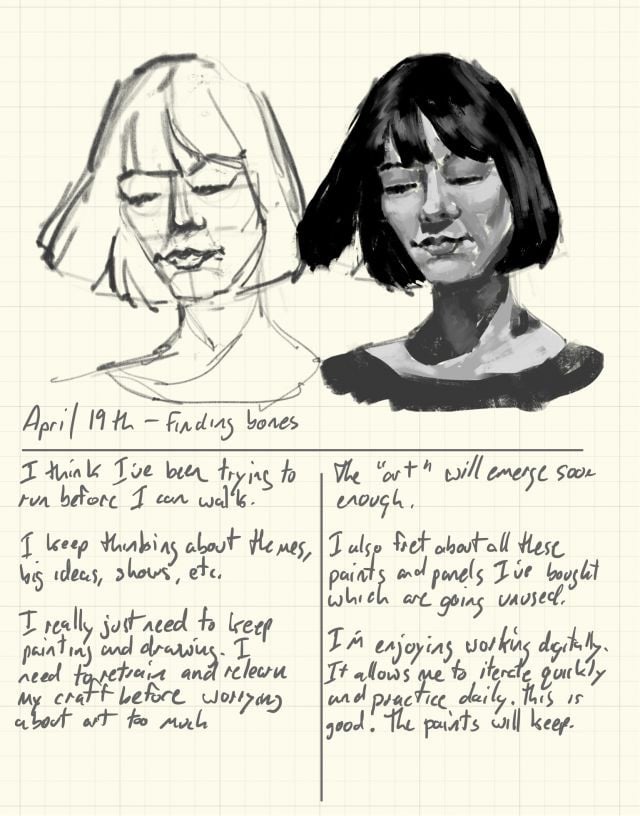 April 19th - Finding bones
I think I've been trying to
run before I can walk.
I keep thinking about themes,
big ideas, shows, etc.
I really just need to keep
painting and drawing. I
need to retrain and relearn
my craft before worrying
about art too much
The "art" will emerge soon
enough.
I also fret about all these
paints and panels I've bought
which are going unused.
I'm enjoying working digitally.
It allows me to iterate quickly
and practice daily. This is
good. The paints will keep.